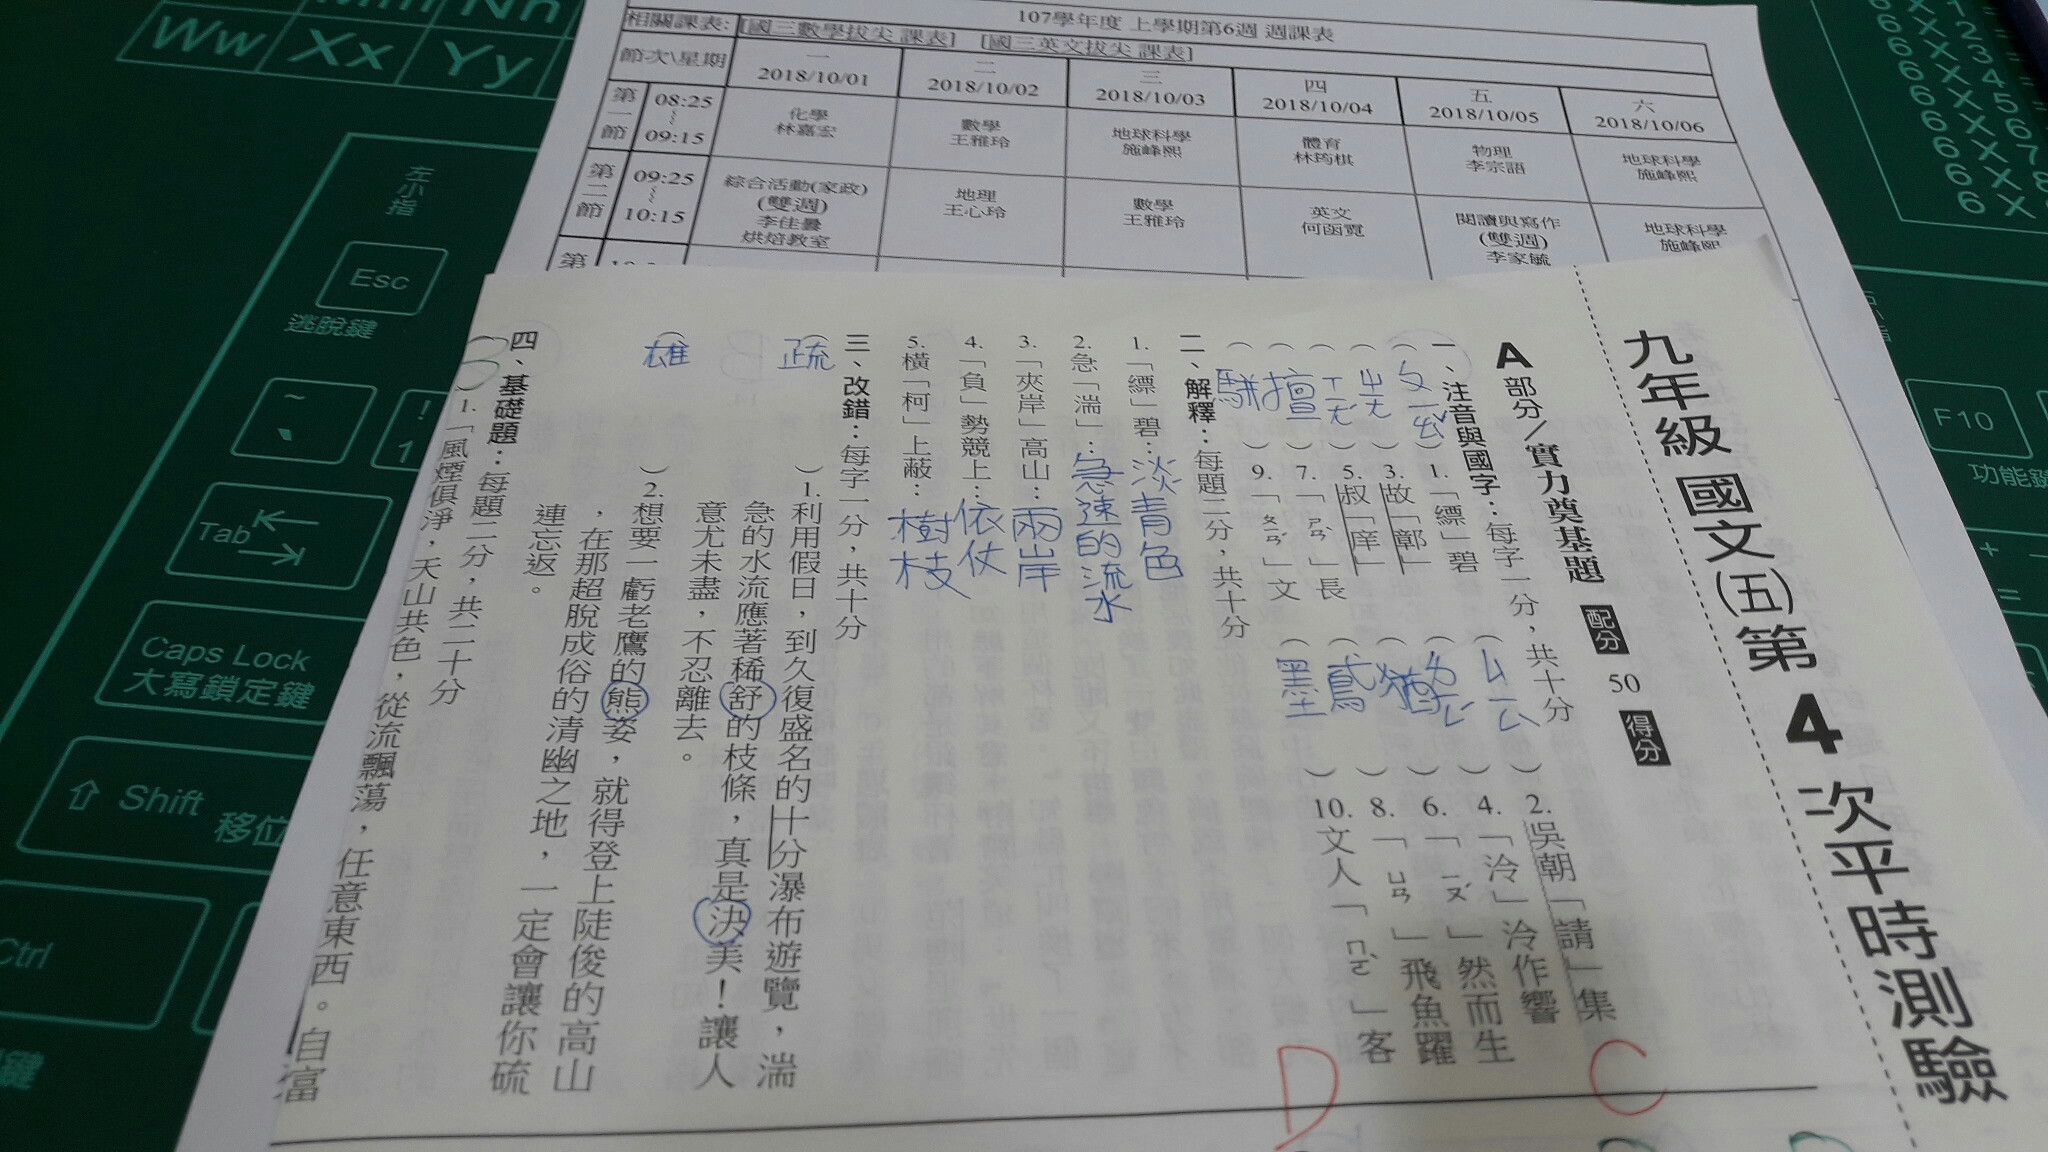 Nn
Ww Xx Yy
左小指
Esc
逃脫鍵
~
!
1
Tab
Caps Lock
大寫鎖定鍵
Shift
移位
Ctrl
F10
107學年度 上學期第6週 週課表
相關課表: [國三數學拔尖 課表] [國三英文拔尖 課表]
節次\星期
一 2018/10/01
二 2018/10/02
三 2018/10/03
四 2018/10/04
五 2018/10/05
六 2018/10/06
第一節 08:25 ~ 09:15
化學 林嘉宏
數學 王雅玲
地球科學 施峰熙
體育 林筠棋
物理 李宗語
地球科學 施峰熙
第二節 09:25 ~ 10:15
綜合活動(家政) (雙週) 李佳曇 烘焙教室
地理 王心玲
數學 王雅玲
英文 何函霓
閱讀與寫作 (雙週) 李家毓
地球科學 施峰熙
第
九年級 國文(五)第4次平時測驗
A 部分/實力奠基題 配分 50 得分
一、注音與國字:每字一分,共十分
(ㄆㄧㄠˇ)1.「縹」碧
(ㄐㄧㄥ)2.吳朝「請」集
(ㄓㄤ)3.故「鄣」
(ㄌㄧㄥˊ)4.「泠」泠作響
(ㄒㄧㄤ)5.叔「庠」
(猶)6.「ㄧㄡˊ」然而生
(擅)7.「ㄕㄢˋ」長
(鳶)8.「ㄩㄢ」飛魚躍
(駢)9.「ㄆㄧㄢˊ」文
(墨)10.文人「ㄇㄛˋ」客
二、解釋:每題二分,共十分
1.「縹」碧:淡青色
2.急「湍」:急速的流水
3.「夾岸」高山:兩岸
4.「負」勢競上:依仗
5.橫「柯」上蔽:樹枝
三、改錯:每字一分,共十分
(疏)1.利用假日,到久復盛名的十分瀑布遊覽,湍
急的水流應著稀舒的枝條,真是決美!讓人
意尤未盡,不忍離去。
(雄)2.想要一虧老鷹的熊姿,就得登上陡俊的高山
,在那超脫成俗的清幽之地,一定會讓你硫
連忘返。
四、基礎題:每題二分,共二十分
(B)1.「風煙俱淨,天山共色,從流飄蕩,任意東西。自富
D
C